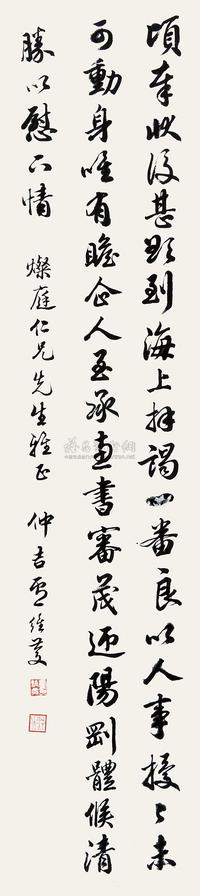 頃奉狀後甚欲到海上拜謁一番良以人事擾〻未
可動身唯有瞻企人至承惠書審茂迎陽剛體候清
勝以慰下情 燦庭仁兄先生雅正 仲吉